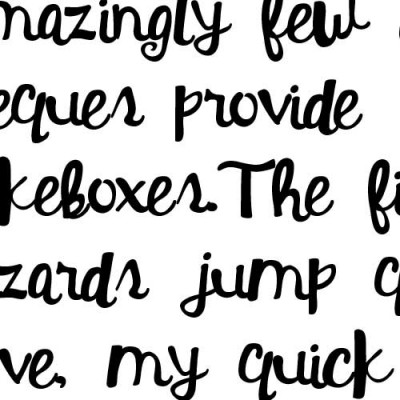 mazingly few
eques provide
keboxes. The fi
zards jump q
ve, my quick